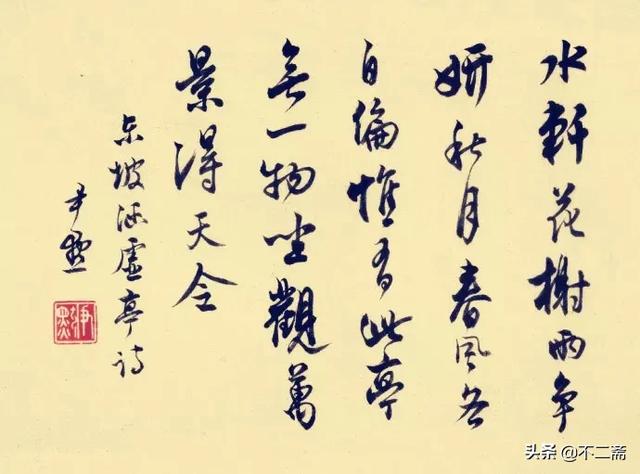 水軒花榭兩争
妍秋月春風各
自偏惟有此亭
無一物坐觀萬
景得天全
东坡涵虛亭诗
尹默
尹默
头条 @不二斋